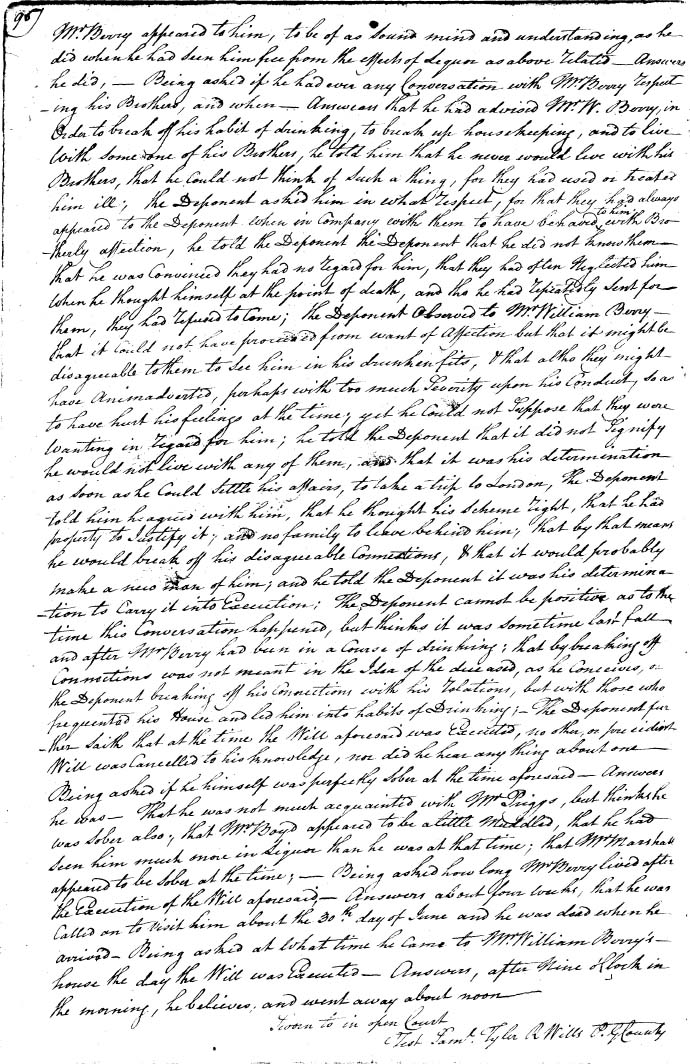 96
Mr. Berry appeared to him, to be of as sound mind and understanding, as he
did when he had seen him free from the effects of Liquor as above related — Answers
he did, — Being asked if he had ever any Conversation with Mr. Berry respect
-ing his Brothers, and when — Answears that he had advised Mr. W. Berry, in
Order to break off his habit of drinking, to break up housekeeping, and to live
With some one of his Brothers, he told him that he never would live with his
Brothers, that he Could not think of Such a thing, for they had used or treated
him ill; the Deponent asked him in what respect, for that they had always
appeared to the Deponent when in Company with them to have behaved to him with Bro
-therly affection, he told the Deponent the Deponent that he did not know them —
that he was Convinced they had no regard for him, that they had often Neglected him
When he thought himself at the point of death, and tho he had repeatedly Sent for
them, they had refused to Come; the Deponent Observed to Mr. William Berry —
that it could not have proceeded from want of Affection but that it might be
disagreable to them to See him in his drunken fits, & that altho they might
have Animadverted, perhaps with too much Severity upon his Conduct, so as
to have hurt his feelings at the time; yet he Could not Suppose that they were
Wanting in regard for him; he told the Deponent that it did not Signify
he would not live with any of them, and that it was his determination
as soon as he Could Settle his affairs, to take a trip to London, The Deponent
told him he agreed with him, that he thought his Scheme right, that he had
property to Justify it; and no family to leave behind him; that by that means
he would break off his disagreable Connections, & that it would probably
make a new Man of him; and he told the Deponent it was his determina
-tion to Carry it into Execution: The Deponent cannot be positive as to the
time this Conversation happened, but thinks it was sometime last fall
and after Mr. Berry had been in a Course of drinking; that by breaking off
Connections was not meant in the Idea of the deceased, as he Conceives, or
the Deponent breaking off his Connections with his Relations, but with those who
frequented his House and led him into habits of Drinking; — The Deponent fur
-ther Saith that at the time the Will aforesaid was Executed, no other, or precedent
Will was Cancelled to his knowledge, nor did he hear any thing about one
Being asked if he himself was perfectly Sober at the time aforesaid — Answers
he was — That he was not much acquainted with Mr. Priggs, but thinks he
was Sober also; that Mr. Boyd appeared to be a little Muddled, that he had
Seen him much more in Liquor than he was at that time; that Mr. Marshall
appeared to be Sober at the time; — Being asked how long Mr. Berry lived after
the Execution of the Will aforesaid — Answers about four Weeks, that he was
Called on to visit him about the 30th day of June and he was dead when he
arrived — Being asked at What time he Came to Mr. William Berry's —
house the day the Will was Executed — Answers, after Nine OClock in
the morning, he believes, and went away about noon —
Sworn to in open Court
Test Saml. Tyler R Wills P. G County